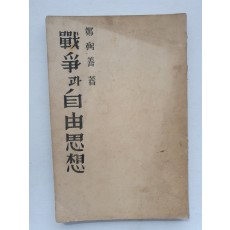 鄭 善 著
戰爭과自由思想